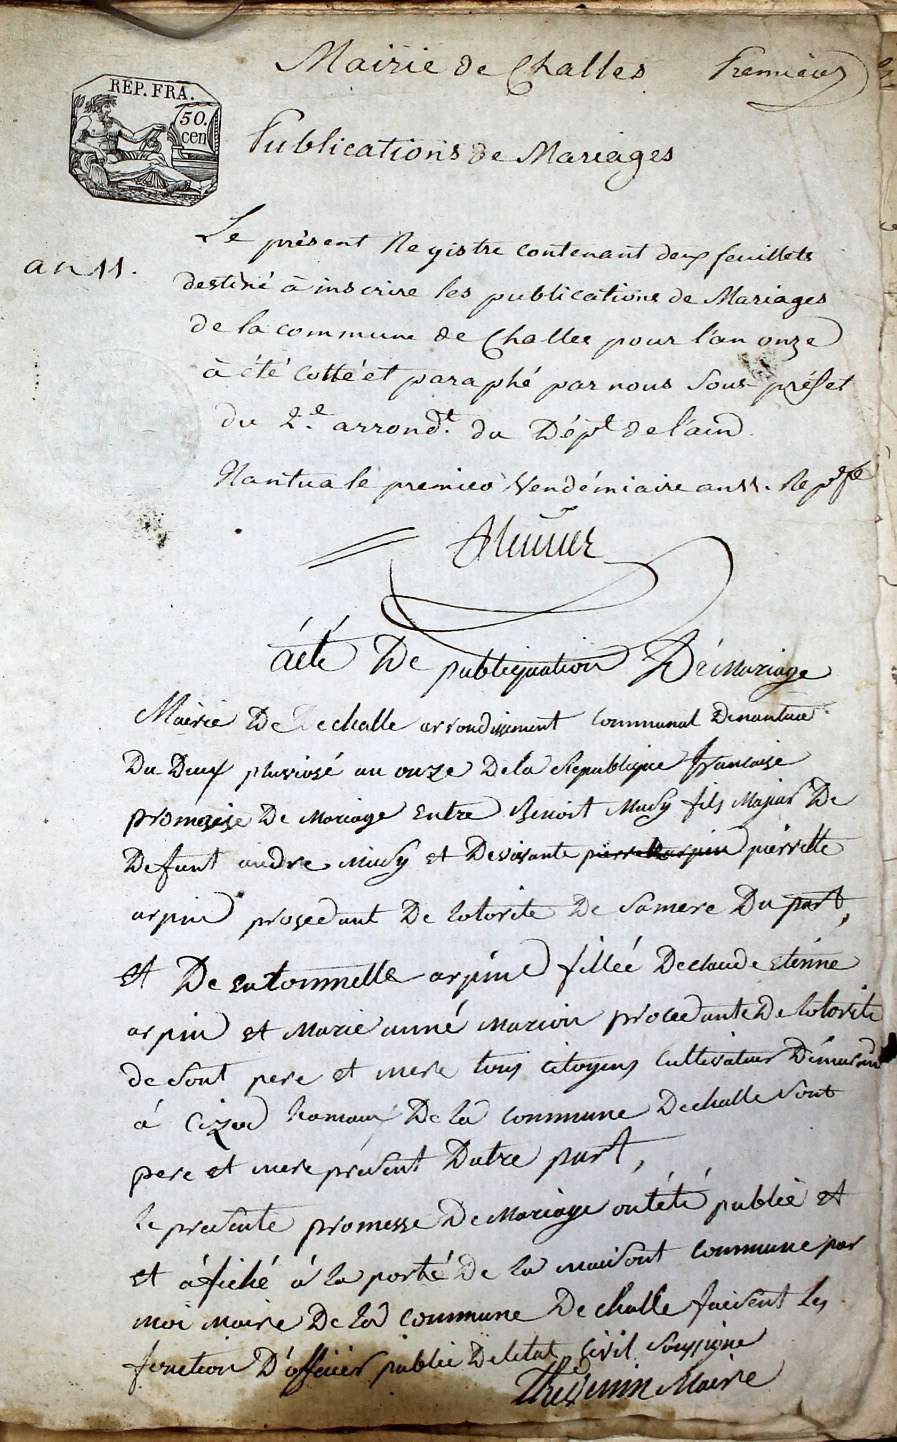 Mairie de Challes Premier
REP. FRA.
50.
cen
Publications de Mariages
an 11.
Le présent Registre contenant deux feuillets
destiné à inscrire les publications de Mariages
de la commune de Challes pour l'an onze
à été cotté et paraphé par nous Sous-préfet
du 2.e arrond.t du Dép.t de l'ain
Nantua le premier Vendémiaire an 11. Rep.e fse
áćte De publiquation De Mariage
Mairie De Dechalle arrondissement communal Denantua
Du Deux pluviosé an onze Dela Republique francaise
promesse De Mariage Entre Benoit Musy fils Majeur De
Defunt andre Musy et Devivante pierrette arpin pierrette
arpin prosedant De lotorite De samere Du part,
et De entonnette arpine fillée Declaude etinne
arpin et Marie anné Marion procedante De lotorité
de sont pere et mere tous citoyens cultivateur Démurand
á Cizod hamaux De la commune Dechalle sont
pere et mere present Dutre part,
le presente promesse De Mariage ont été publié et
et áfiché á la porté De la maisont commune par
moi maire De la commune De challe faisent les
fonction D'officier public Deletat civil soussigné
Thevenin Maire